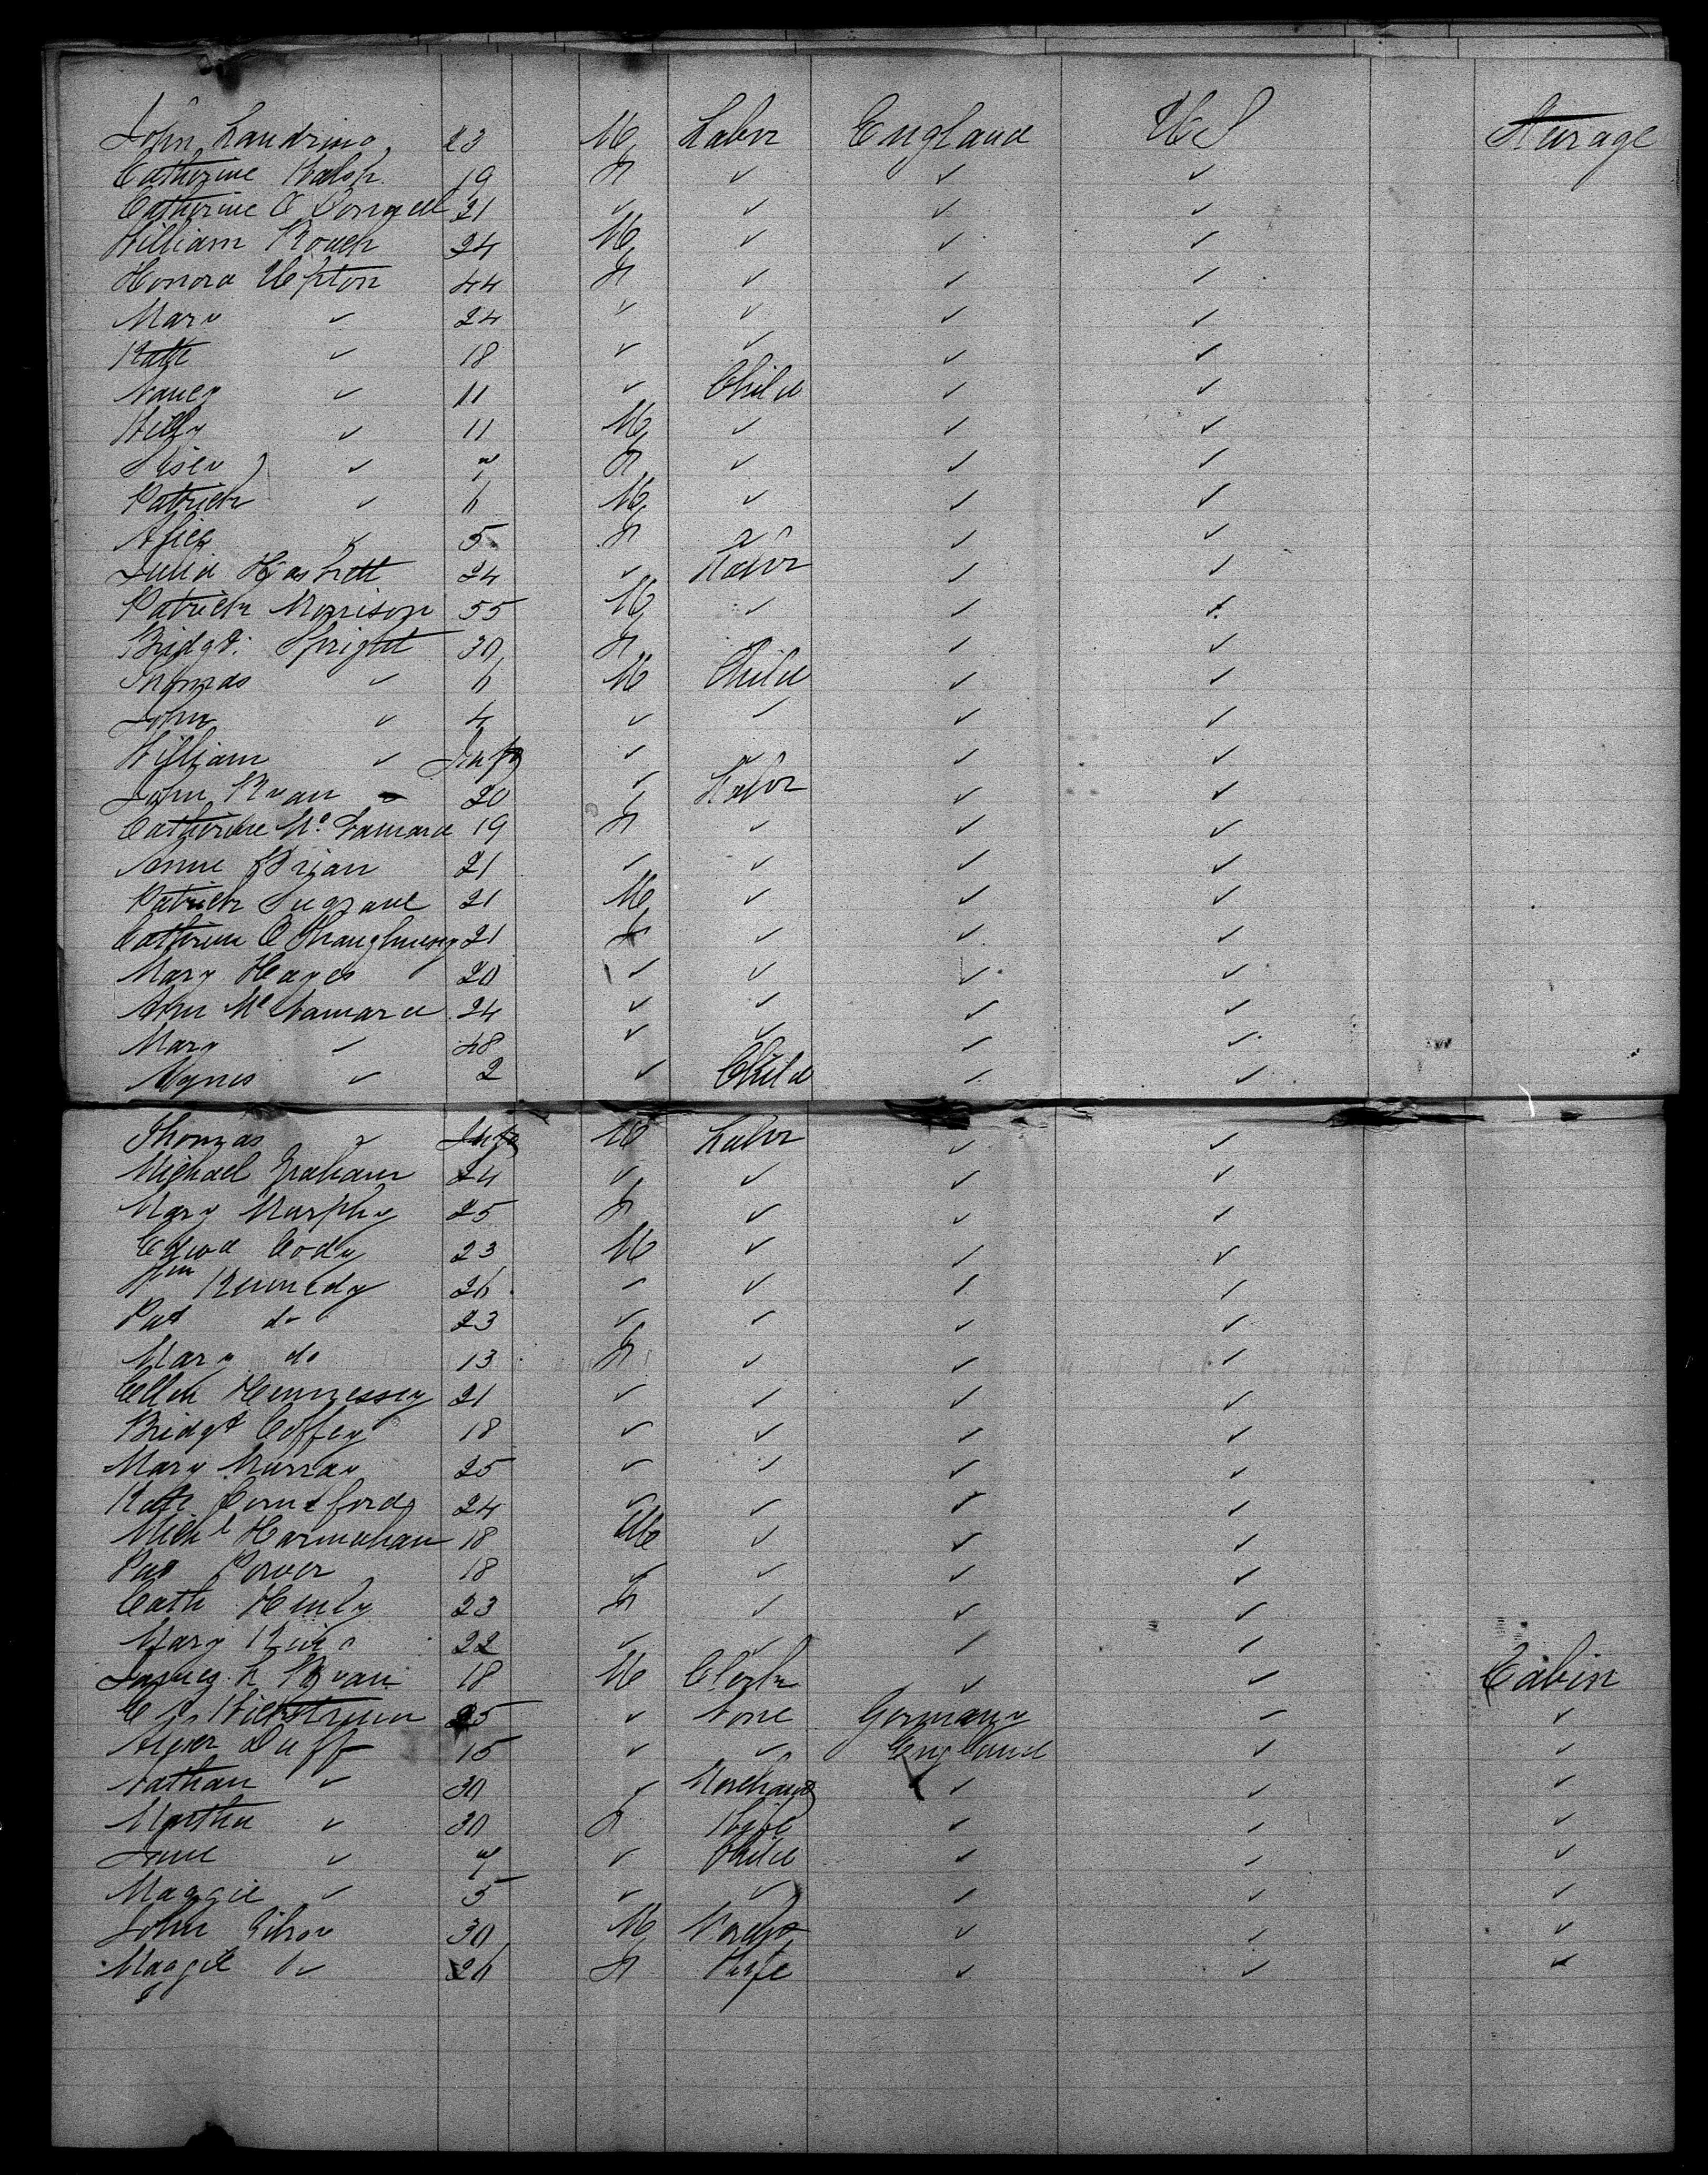 John 23 M Labor England U S Steerage
Catherine Walsh 19 F ✓ ✓ ✓
Catherine O Donnell 21 ✓ ✓ ✓ ✓
William Roach 24 M ✓ ✓ ✓
Honora Upton 44 F ✓ ✓ ✓
Mary ✓ 24 ✓ ✓ ✓ ✓
Kate ✓ 18 ✓ ✓ ✓ ✓
Nancy ✓ 11 ✓ Child ✓ ✓
Willy ✓ 11 M ✓ ✓ ✓
✓ 7 F ✓ ✓ ✓
Patrick ✓ 6 M ✓ ✓ ✓
Alice ✓ 5 F ✓ ✓ ✓
Julia Haskett 24 ✓ Labor ✓ ✓
Patrick Morrison 55 M ✓ ✓ ✓
Bridgt. Spright 30 F ✓ ✓
Thomas ✓ 6 M Child ✓ ✓
John ✓ 4 ✓ ✓ ✓ ✓
William ✓ Inft ✓ ✓ ✓ ✓
John Ryan 20 ✓ Labor ✓ ✓
Catherine Mc Namara 19 F ✓ ✓ ✓
Anne Brian 21 ✓ ✓ ✓ ✓
Patrick Sugrave 21 M ✓ ✓ ✓
Catherine O Shaughnesy 21 F ✓ ✓ ✓
Mary Hayes 20 ✓ ✓ ✓ ✓
Ann Mc Namara 24 ✓ ✓ ✓ ✓
Mary ✓ 48 ✓ ✓ ✓ ✓
Agnes ✓ 2 ✓ Child ✓ ✓
Thomas ✓ Inft M Labor ✓ ✓
Michael Graham 24 ✓ ✓ ✓ ✓
Mary Murphy 25 F ✓ ✓ ✓
Edwd Cody 23 M ✓ ✓ ✓
Wm Kennedy 26 ✓ ✓ ✓ ✓
Pat do 23 ✓ ✓ ✓ ✓
Mary do 13 F ✓ ✓ ✓
Ellen Hennessey 21 ✓ ✓ ✓ ✓
Bridgt Coffey 18 ✓ ✓ ✓ ✓
Mary Murray 25 ✓ ✓ ✓ ✓
Kate 24 ✓ ✓ ✓ ✓
Michl 18 M ✓ ✓ ✓
Pat Power 18 ✓ ✓ ✓ ✓
Cath Henly 23 F ✓ ✓ ✓
Mary 22 ✓ ✓ ✓ ✓
James Ryan 18 M Clerk ✓ ✓ Cabin
25 ✓ None Germany ✓ ✓
Duff 15 ✓ ✓ England ✓ ✓
Nathan ✓ 30 ✓ Merchant ✓ ✓ ✓
Martha ✓ 30 F Wife ✓ ✓ ✓
Jane ✓ 7 ✓ Child ✓ ✓ ✓
Maggie ✓ 5 ✓ ✓ ✓ ✓ ✓
John 30 M ✓ ✓ ✓
Maggie 26 F Wife ✓ ✓ ✓